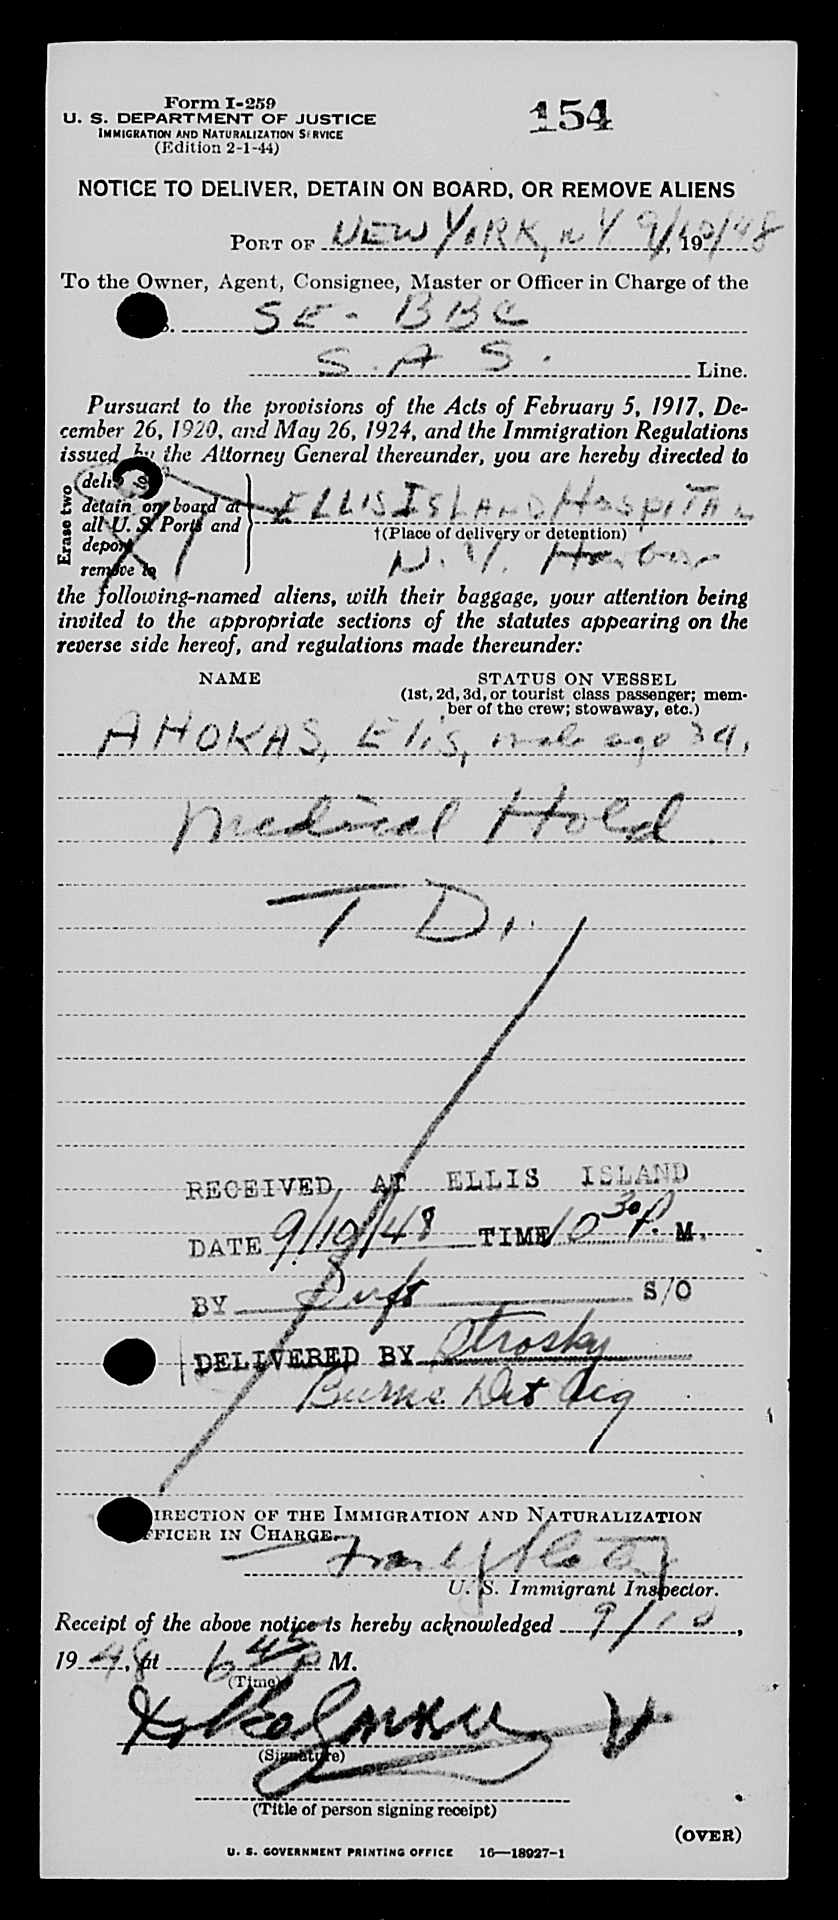 Form I-259
U. S. DEPARTMENT OF JUSTICE
IMMIGRATION AND NATURALIZATION SERVICE
(Edition 2-1-44)
154
NOTICE TO DELIVER, DETAIN ON BOARD, OR REMOVE ALIENS
PORT OF NEW YORK, N Y 9/10/48, 19
To the Owner, Agent, Consignee, Master or Officer in Charge of the
S. SE-BBC
S.A.S. Line.
Pursuant to the provisions of the Acts of February 5, 1917, De-
cember 26, 1920, and May 26, 1924, and the Immigration Regulations
issued by the Attorney General thereunder, you are hereby directed to
Erase two
detain on board at
all U. S. Ports and
deport
remove to
ELLIS ISLAND HOSPITAL
†(Place of delivery or detention)
N. Y. Harbor
the following-named aliens, with their baggage, your attention being
invited to the appropriate sections of the statutes appearing on the
reverse side hereof, and regulations made thereunder:
NAME
STATUS ON VESSEL
(1st, 2d, 3d, or tourist class passenger; mem-
ber of the crew; stowaway, etc.)
AHOKAS, Elis, male age 39,
Medical Hold
T D.
RECEIVED AT ELLIS ISLAND
DATE 9/10/48 TIME 10 30 P. M.
BY S/O
DELIVERED BY Otrosky
Burns Det Acg
IRECTION OF THE IMMIGRATION AND NATURALIZATION
FFICER IN CHARGE.
U. S. Immigrant Inspector.
Receipt of the above notice is hereby acknowledged 9/10,
1948, at 6 45 P M.
(Time)
(Signature)
(Title of person signing receipt)
(OVER)
U. S. GOVERNMENT PRINTING OFFICE 16—18927-1